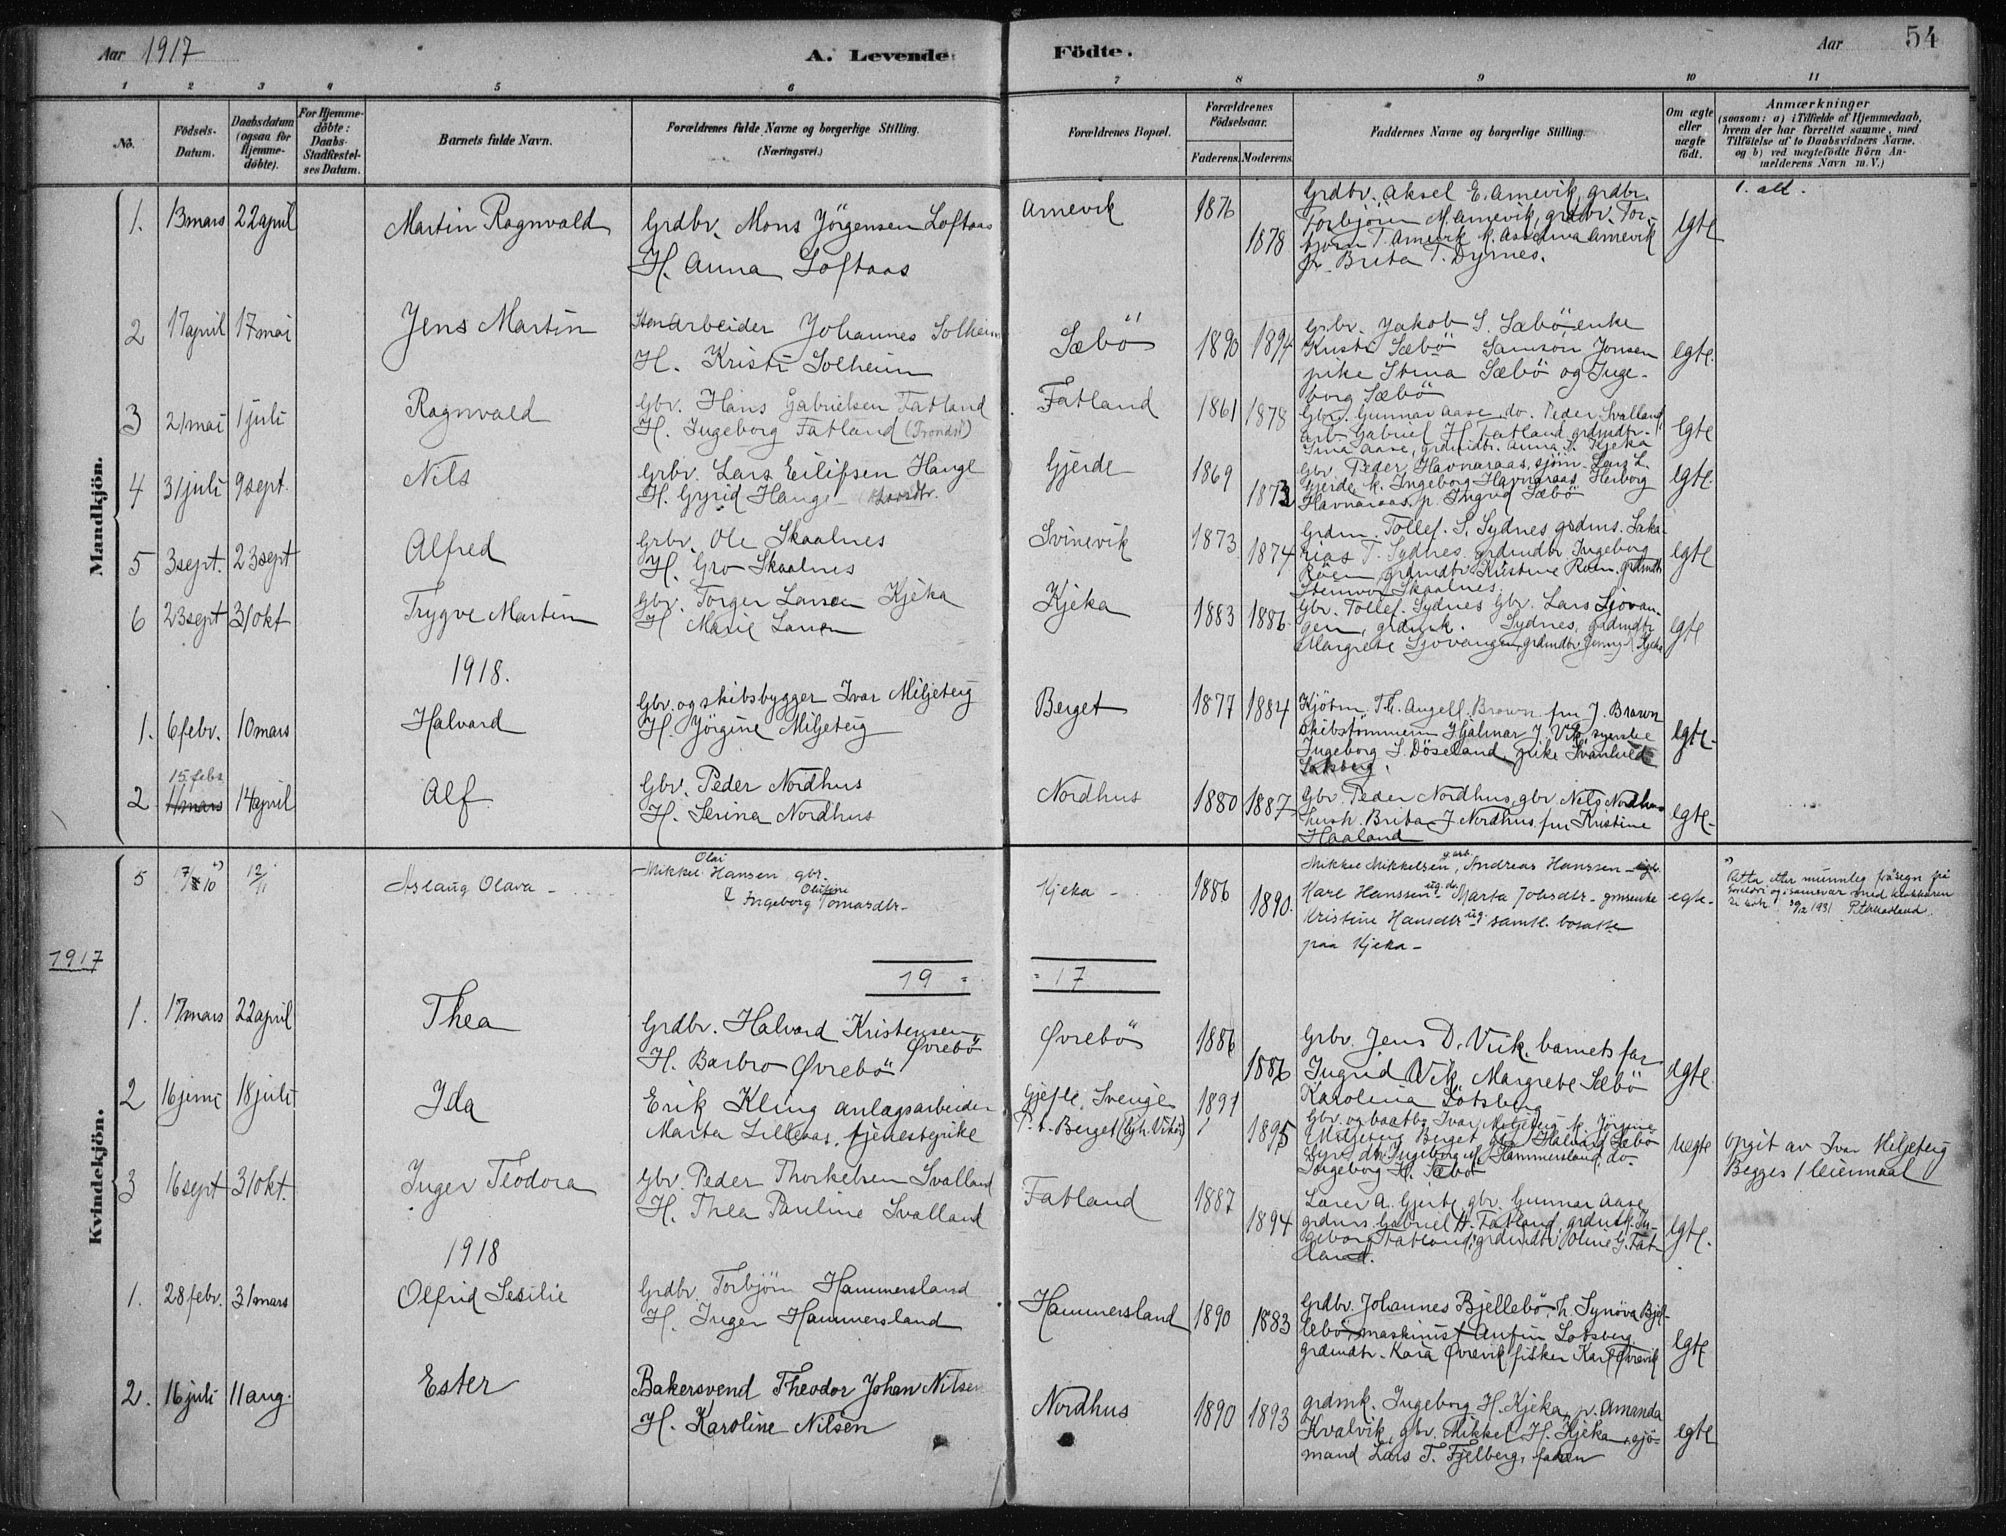 Aar 1917
A. Levende Födte.
Aar
54
1 2 3 4 5 6 7 8 9 10 11
No.
Födsels-Datum.
Daabsdatum (ogsaa for Hjemme-döbte).
For Hjemme-döbte: Daabs-Stadfæstel-ses Datum.
Barnets fulde Navn.
Forældrenes fulde Navne og borgerlige Stilling. (Næringsvei.)
Forældrenes Bopæl.
Forældrenes Födselsaar.
Faderens. Moderens.
Faddernes Navne og borgerlige Stilling.
Om ægte eller uægte födt.
Anmærkninger
(saasom: a) i Tilfælde af Hjemmedaab, hvem der har forrettet samme, med Tilföielse af to Daabsvidners Navne. og b) ved uægtefödte Börn An-melderens Navn m. V.)
Mandkjön.
1. 13 mars 22 april Martin Ragnvald
Grdbr. Mons Jörgensen Loftaas
H. Anna Loftaas
Arnevik 1876 1878
Grdbr. Aksel E. Arnevik, grdbr.
Torbjörn M. Arnevik, grdbr. Tor-
björn T. Arnevik k. Arnevik
p. Brita T. Dyrnes.
egte
2 17 april 17 mai Jens Martin
Stenarbeider Johannes Solheim
H. Kristi Solheim
Sæbö 1890 1894
Grbr. Jakob S. Sæbö enke
Kristi Sæbö Samson Jonsen
pike Stina Sæbö og Inge-
borg Sæbö
egte.
3 21 mai 1 juli Ragnvald
Gbr. Hans Gabrielsen Fatland
H. Ingeborg Fatland
Fatland 1861 1878
Gbr. Gunnar Aase, do. Peder Svalland
arb. Gabriel H. Fatland grdmdtr.
Aase, grdmdtr. Anna Kjeka
egte
4 31 juli 9 sept. Nils
Grbr. Lars Eilifsen Hauge
H. Gyrid Hauge
Gjerde 1869 1873
Gbr. Peder Havnaraas, sjöm. Lars L.
Gjerde, k. Ingeborg Havnaraas, Herborg
Havnaraas, p. Ingrid Sæbö
egte.
5 3 sept. 23 sept Alfred
Grbr. Ole Skaalnes
H. Gro Skaalnes
Svinevik 1873 1874
Grdm. Tollef. S. Sydnes grdms. Saka-
rias T. Sydnes grdmdtr Ingeborg
Röen, grdmdtr Kristine Röen, grdmdtr
Skaalnes.
egte
6 23 sept 31 okt Trygve Martin
Gbr. Torger Larsen Kjeka
H. Marie Larsen
Kjeka 1883 1886
Gbr. Tollef. Sydnes Gbr. Lars Sjovan-
gen, grdmk. Sydnes, grdmdtr
Margrete Sjovangen, grdmdtr Jenny Kjeka
egte
1918.
1. 6 febr. 10 mars Halvard
Gbr. og skibsbygger Ivar Miljeteig
H. Jörgine Miljeteig
Berget 1877 1884
Kjöbm. Th. Angell. Brown fru J. Brown
skibstömmerm Hjalmar J. Vik, syerske
Ingeborg S. Döseland, pike Svanhild
Lotsberg.
egte.
2 15 febr 11 mars 14 april Alf
Gbr. Peder Nordhus
H. Serina Nordhus
Nordhus 1880 1887
Gbr. Peder Nordhus, gbr Nils Nordhus
hush. Brita J Nordhus fru Kristine
Haaland
egte.
5 17/10 +) 12/11 Aslaug Olava -
Mikkel Olai Hansen gbr.
& Ingeborg Oline Tomasdtr.
Kjeka - 1886 1890.
Mikkel Mikkelsen, g.arb. Andreas Hanssen
Karl Hanssen ug. do. Marta Johsdtr. gmsenke
Kristine Hansdtr ug samtl. bosatte
paa Kjeka -
egte.
+) Atta etter munnleg fråsegn frå
foreldri og i samsvar med klokkaren
si bok. 29/12 1931
1917
19 = = 17
Kvindekjön.
1. 17 mars 22 april Thea
Grdbr. Halvard Kristensen Övrebö
H. Barbro Övrebö
Övrebö 1886 1886
Grbr. Jens D. Vik, barnets far
Ingrid Vik, Margrete Sæbö
Karolina Lotsberg
egte.
2 16 juni 18 juli Ida
Erik Kling anlægsarbeider
Marta Lillevas, tjenestepike
Gjefle, Sverige
P.t. Berget (lgh. Vikör)
1891 1895
Gbr. og baatb. Ivar Miljeteig k. Jörgine
Miljeteig Berget, Gbr. Halvard Sæbö
Ingeborg M Hammersland, do.
Ingeborg H. Sæbö
uegte
Opgit av Ivar Miljeteig
Begges 1 leiermaal
3 16 sept 31 okt. Inger Teodora
Gbr. Peder Thorkelsen Svalland
H. Thea Pauline Svalland
Fatland 1887 1894
Lærer A. Gjerde, gbr. Gunnar Aase,
grdms. Gabriel H. Fatland, grdmk. In-
geborg Fatland, grdmdtr Oline G. Fat-
land.
egte.
1918
1. 28 febr. 31 mars Olfrid Sesilie
Grdbr. Torbjörn Hammersland
H. Inger Hammersland
Hammersland 1890 1883
Grdbr. Johannes Bjellebö, h. Synöva Bjel-
lebö, maskinist Anfin Lotsberg
grdmdtr. Kara Övrevik fisker Karl Övrevik
egte
2. 16 juli 11 aug. Ester
Bakersvend Theodor Johan Nilsen
H. Karoline Nilsen
Nordhus 1890 1893
grdmk. Ingeborg H. Kjeka, p. Amanda
Kvalvik, gbr. Mikkel H. Kjeka, sjö-
mand Lars T. Fjelberg, faderen
egte